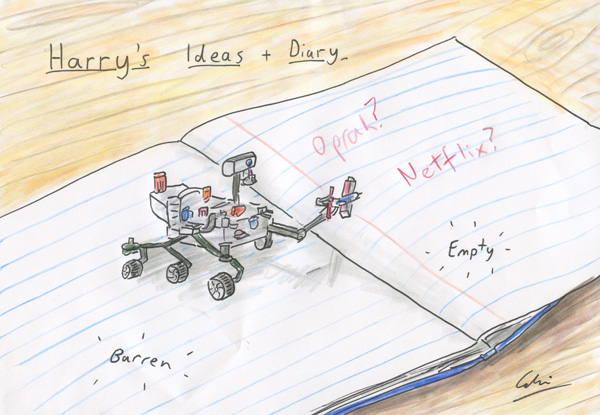 Harry's Ideas + Diary
Oprah?
Netflix?
Empty
Barren